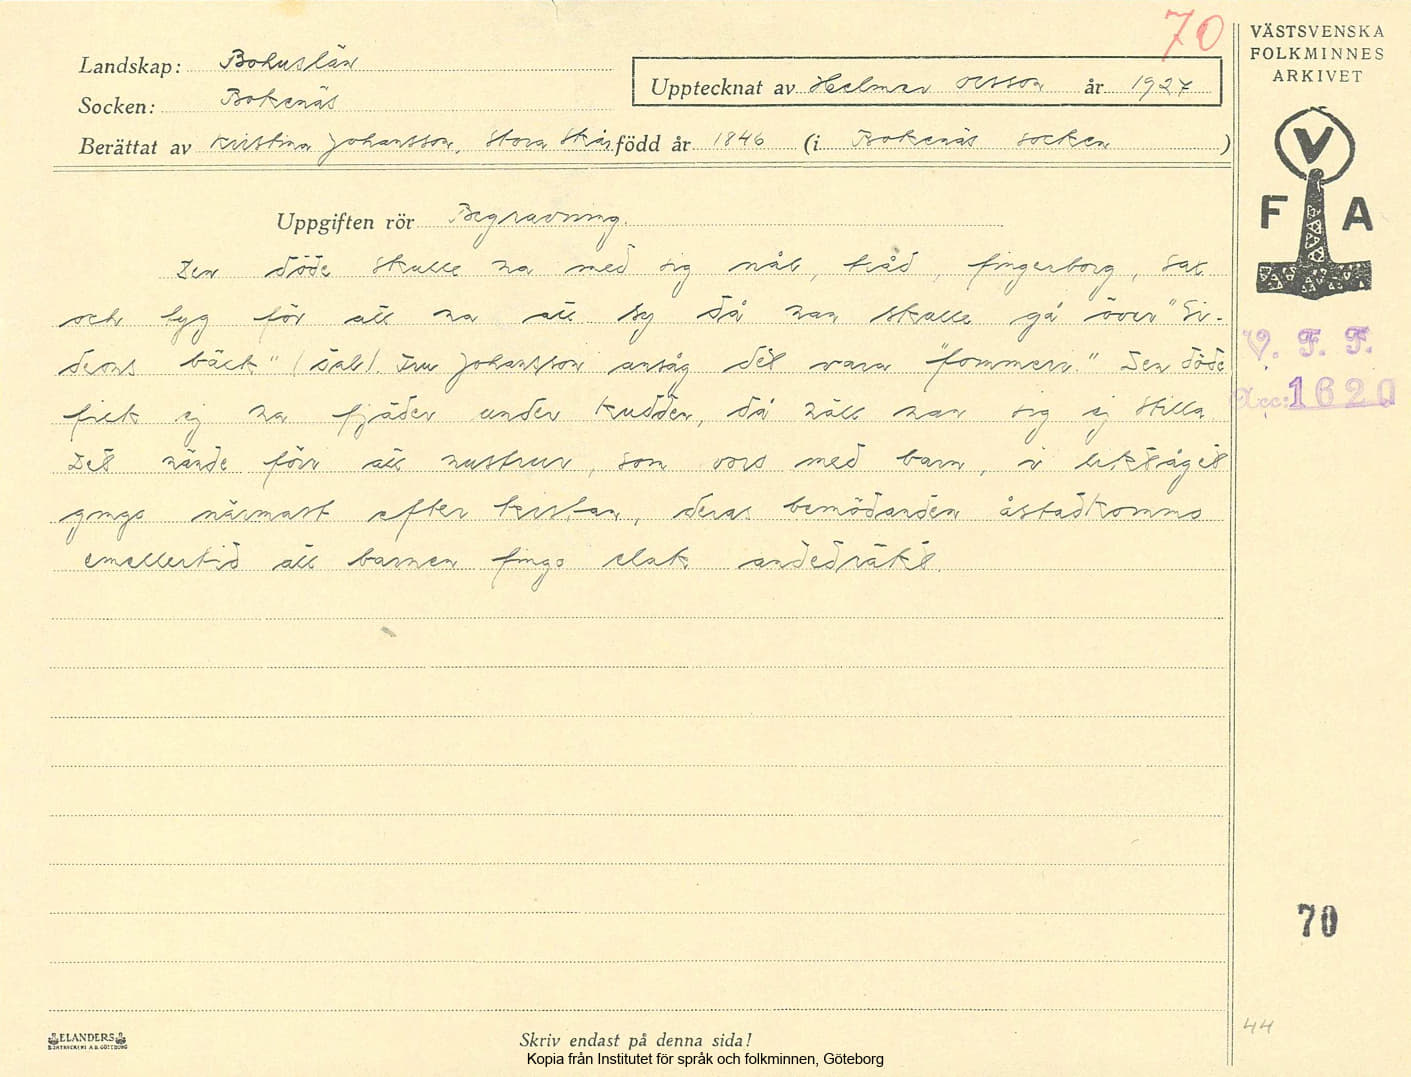 70
VÄSTSVENSKA
FOLKMINNES
ARKIVET
Landskap: Bohuslän
Socken: Bokenäs
Upptecknat av Helmer Olsson år 1927
Berättat av Kristina Johansson, Stora Skår född år 1846 (i Bokenäs socken )
V
F A
Uppgiften rör Begravning.
Den döde skulle ha med sig nål, tråd, fingerborg, sax
och tyg för att ha att sy då han skulle gå över "Gi-
deons bäck" (dal). Fru Johansson ansåg det vara "fommeri." Den döde
fick ej ha fjäder under kudden, då höll han sig ej stilla.
Det hände förr att hustrur, som voro med barn, i liktåget
gingo närmast efter kistan, deras bemödanden åstadkommo
emellertid att barnen fingo elak andedräkt.
V. F. F.
Acc: 1620
70
44
ELANDERS
BOKTRYCKERI A.B. GÖTEBORG
Skriv endast på denna sida!
Kopia från Institutet för språk och folkminnen, Göteborg